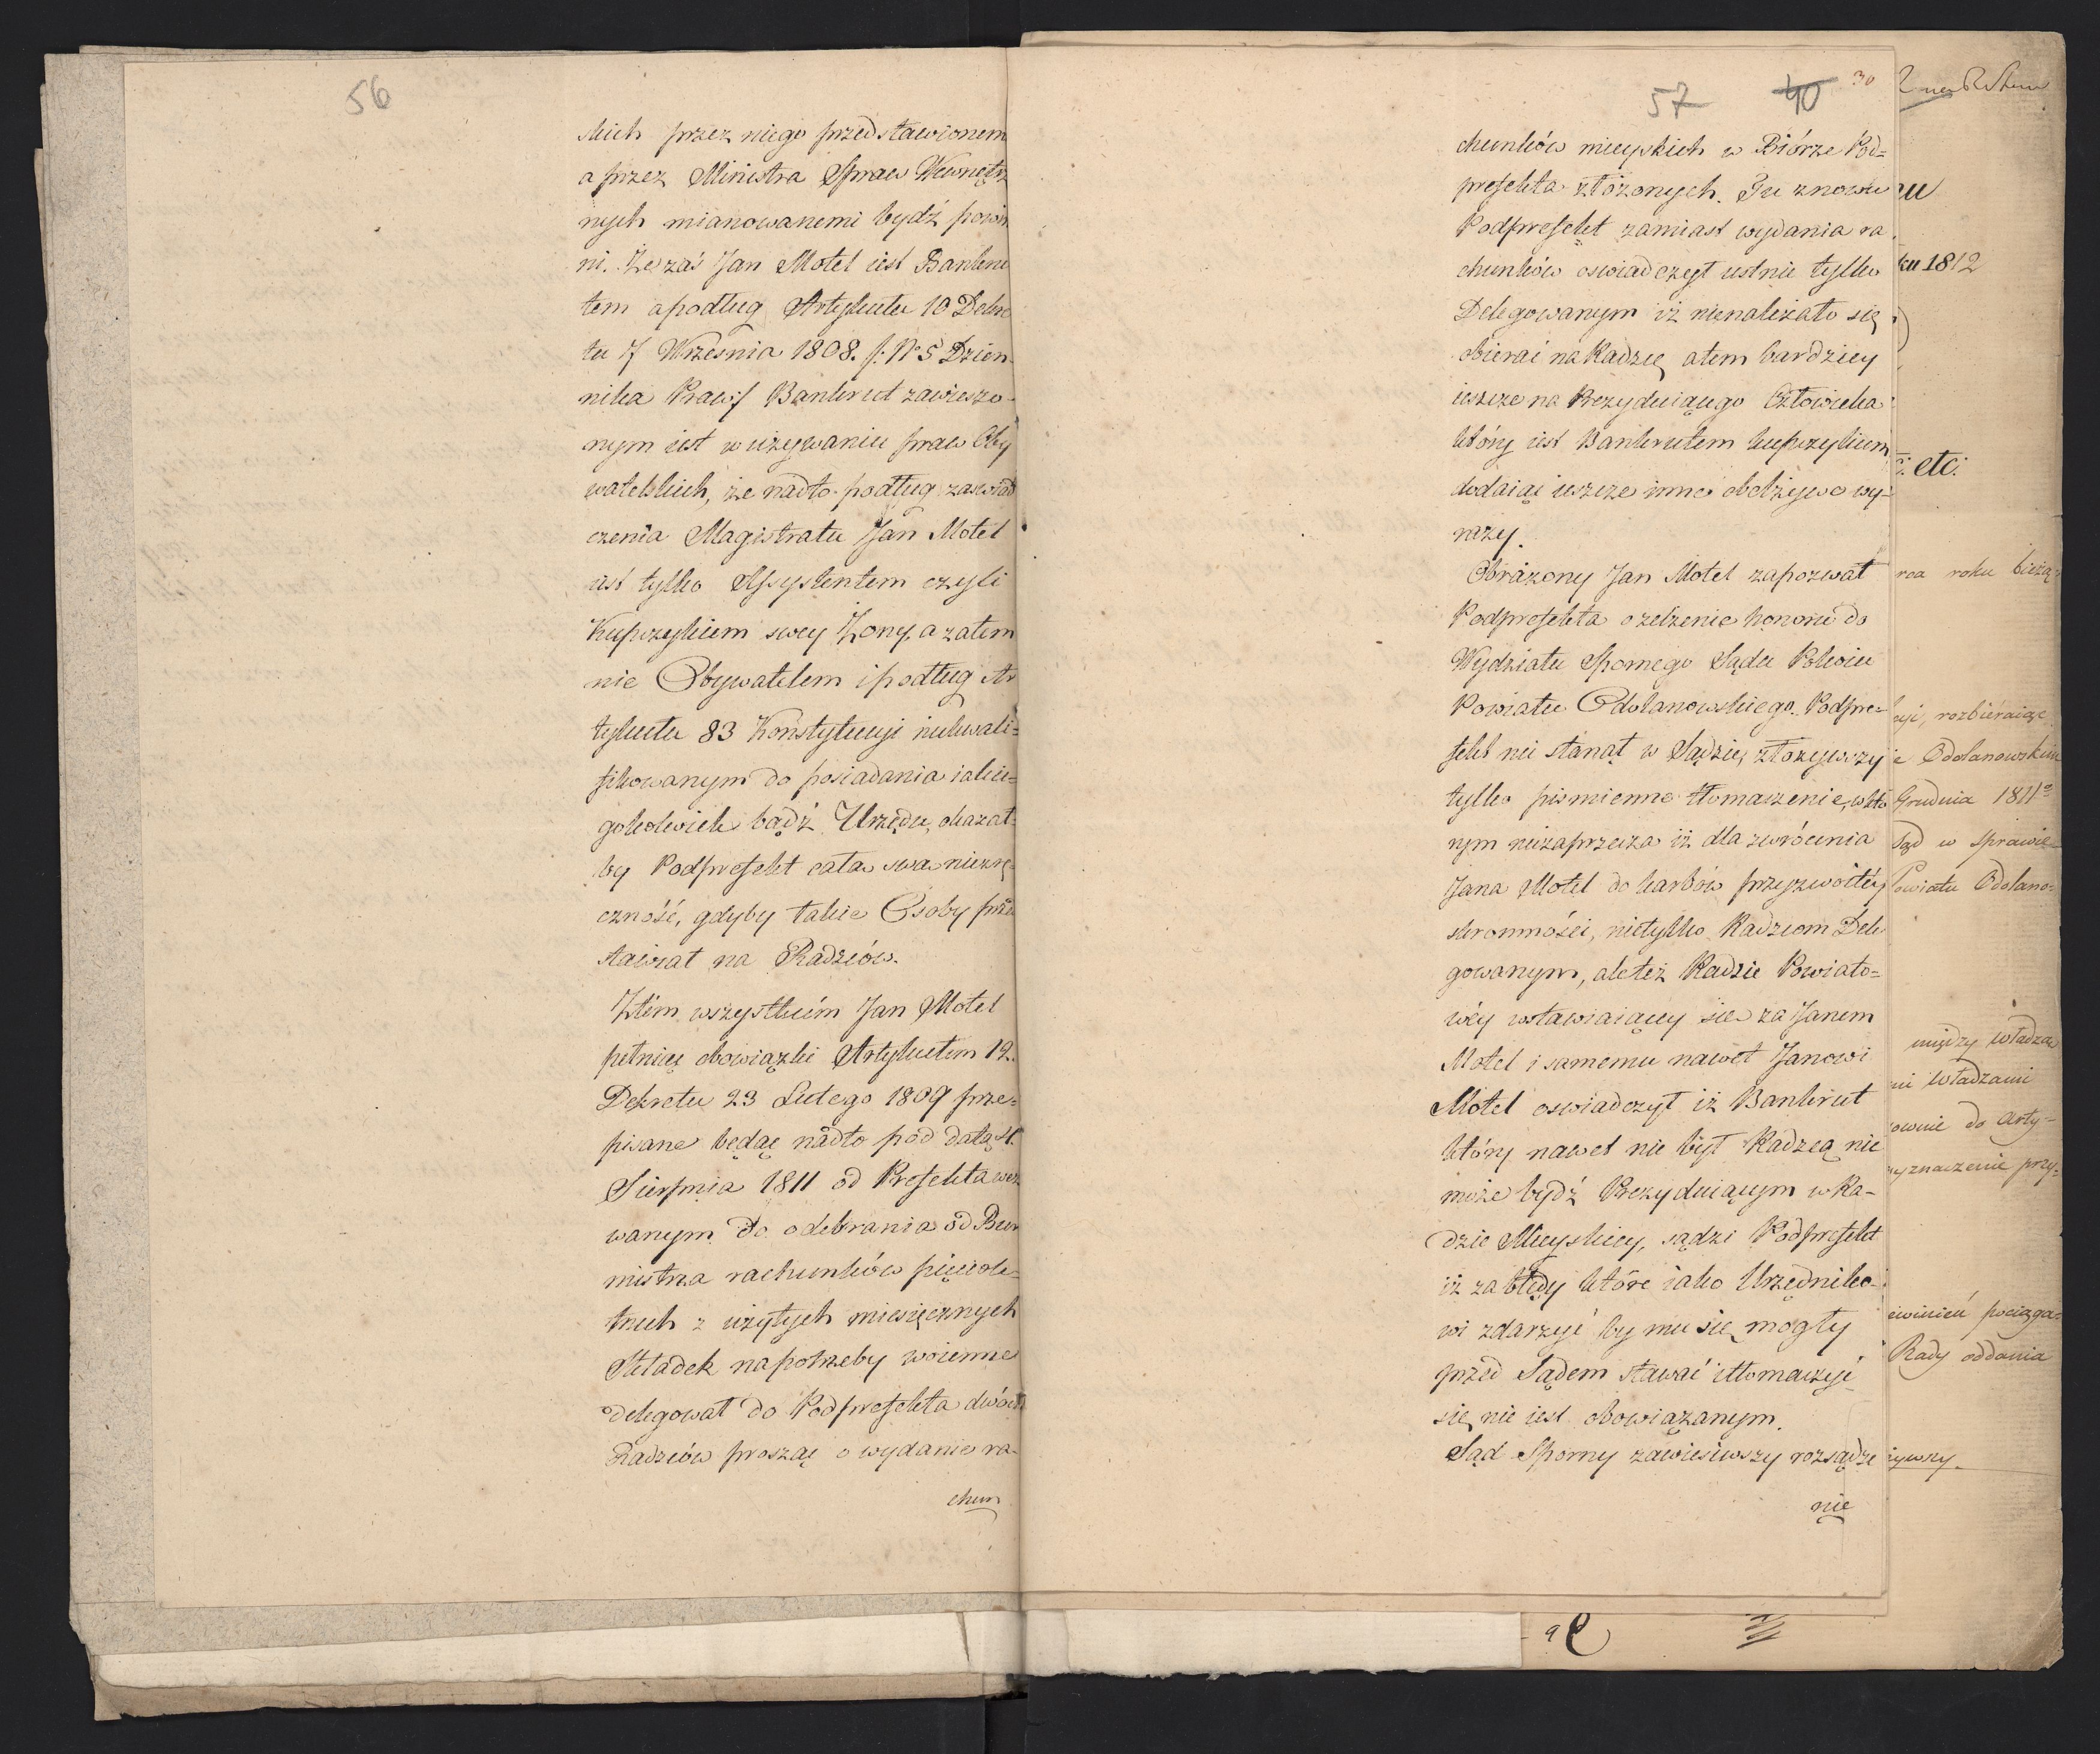 56
skich przez niego przedstawionem
a przez Ministra Spraw Wewnętrz
nych mianowanemi bydź powin
ni. Że zaś Jan Motel iest Bankru
tem a podług Artykułu 10 Dekre
tu 7 Września 1808. /: No 5 Dzien-
nika Praw :/ Bankrut zawieszo-
nym iest w używaniu praw Oby
watelskich, że nadto podług zaswiad
czenia Magistratu Jan Motel
iest tylko Assystentem czyli
Kupczykiem swey Żony, a zatem
nie Obywatelem i podług Ar
tykułu 83 Konstytucyi niekwali=
fikowanym do posiadania iakie=
gokolwiek bądź Urzędu, okazał=
by Podprefekt całą swą niezrę-
czność, gdyby takie Osoby prze
stawiał na Radzców.
Ztém wszystkiém Jan Motel
pełniąc obowiązki Artykułem 12.
Dekretu 23 Lutego 1809 prze=
pisane będąc nadto pod datą 4.
Sierpnia 1811 od Prefekta wez
wanym do odebrania od Bur
mistrza rachunków pięciole=
tnich z użytych miesięcznych
Składek na potrzeby woienne
delegował do Podprefekta dwóch
Radzców prosząc o wydanie ra-
chun
57 40 30
chunków mieyskich w Biórze Pod=
prefekta złożonych. Tu znowu
Podprefekt zamiast wydania ra
chunków oswiadczył ustnie tylko
Delegowanym iż nienależało się
obierać na Radzcę a tem bardziey
ieszcze na Prezyduiącego Człowieka
który iest Bankrutem kupczykiem
dodaiąc ieszcze inne obelżywe wy-
razy.
Obrażony Jan Motel zapozwał
Podprefekta o zelżenie honoru do
Wydziału Spornego Sądu Pokoiu
Powiatu Odolanowskiego. Podpre=
fekt nie stanął w Sądzie, złożywszy
tylko pismienne tłomaczenie, w któ
rym niezaprzecza iż dla zwrócenia
Jana Motel do karbów przyzwoitéy
skromności, nietylko Radzcom Dele
gowanym, ale też Radzie Powiato=
wéy wstawiaiącey się za Janem
Motel i samemu nawet Janowi
Motel oswiadczył iż Bankrut
który nawet nie był Radzcą nie
może bydź Prezyduiącym w Ra-
dzie Mieyskiey, sądzi Podprefekt
iż za błędy które iako Urzędniko-
wi zdarzyć by mu się mogły
przed Sądem stawać i tłomaczyć
się nie iest obowiązanym.
Sąd Sporny zawiesiwszy rozsądze
nie
ku 1812
etc.
roku bieżą-
cyi, rozbieraiąc
Odolanowskim
Grudnia 1811
Sąd w sprawie
Powiatu Odolano=
między władzą
władzami
do arty-
wyznaczenie przy-
pociąga-
Rady oddania